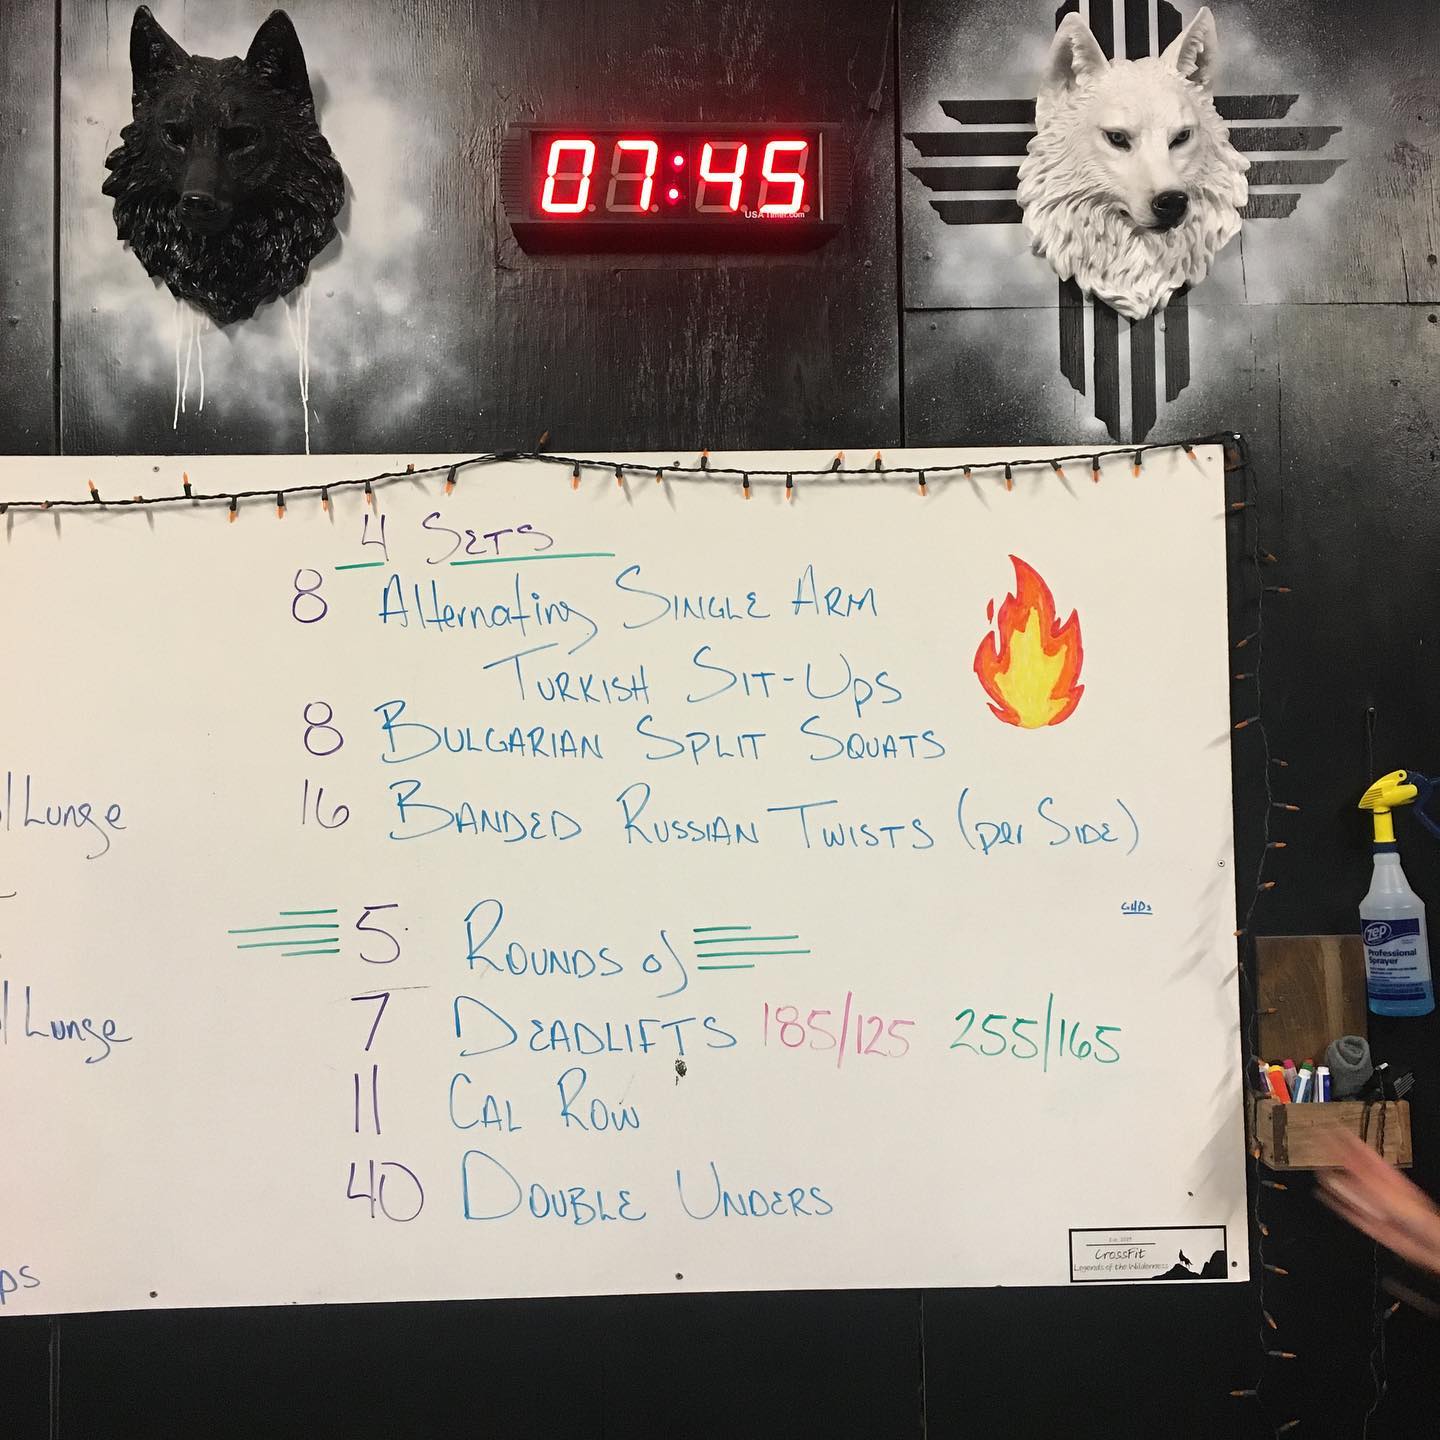 07:45
USA Timer.com
4 Sets
8 Alternating Single Arm
Turkish Sit-Ups
8 Bulgarian Split Squats
16 Banded Russian Twists (per Side)
Lunge
GHDs
5 Rounds of
7 Deadlifts 185/125 255/165
Lunge
11 Cal Row
40 Double Unders
ps
CrossFit
Legends of the Wilderness
zep
Professional
Sprayer